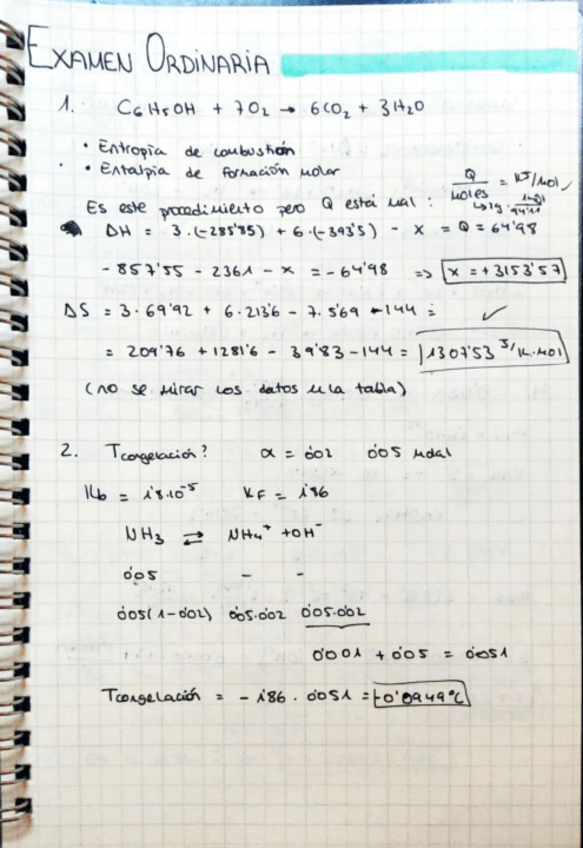 EXAMEN ORDINARIA
1. C6H5OH + 7O2 → 6CO2 + 3H2O
• Entropía de combustión
• Entalpia de Formación molar
Es este procedimiento pero Q está mal : Q/moles = KJ/mol ✓
↳ 1g. 1mol/94'11
ΔH = 3.(-285'85) + 6.(-393'5) - x = Q = 64'98
-857'55 - 2361 - x = -64'98 ⇒ x = +3153'57
ΔS = 3.69'92 + 6.213'6 - 7.5'69 - 144 = ✓
= 209'76 + 1281'6 - 39'83 - 144 = 1307'53 J/K.mol
(no se mirar los datos en la tabla)
2. Tcongelación? α = 0'02 0'05 molal
Kb = 1'8.10⁻⁵ KF = 1'86
NH3 ⇄ NH4⁺ + OH⁻
0'05 - -
0'05(1-0'02) 0'05.0'02 0'05.0'02
0'001 + 0'05 = 0'051
Tcongelación = - 1'86 . 0'051 = -0'0949°C